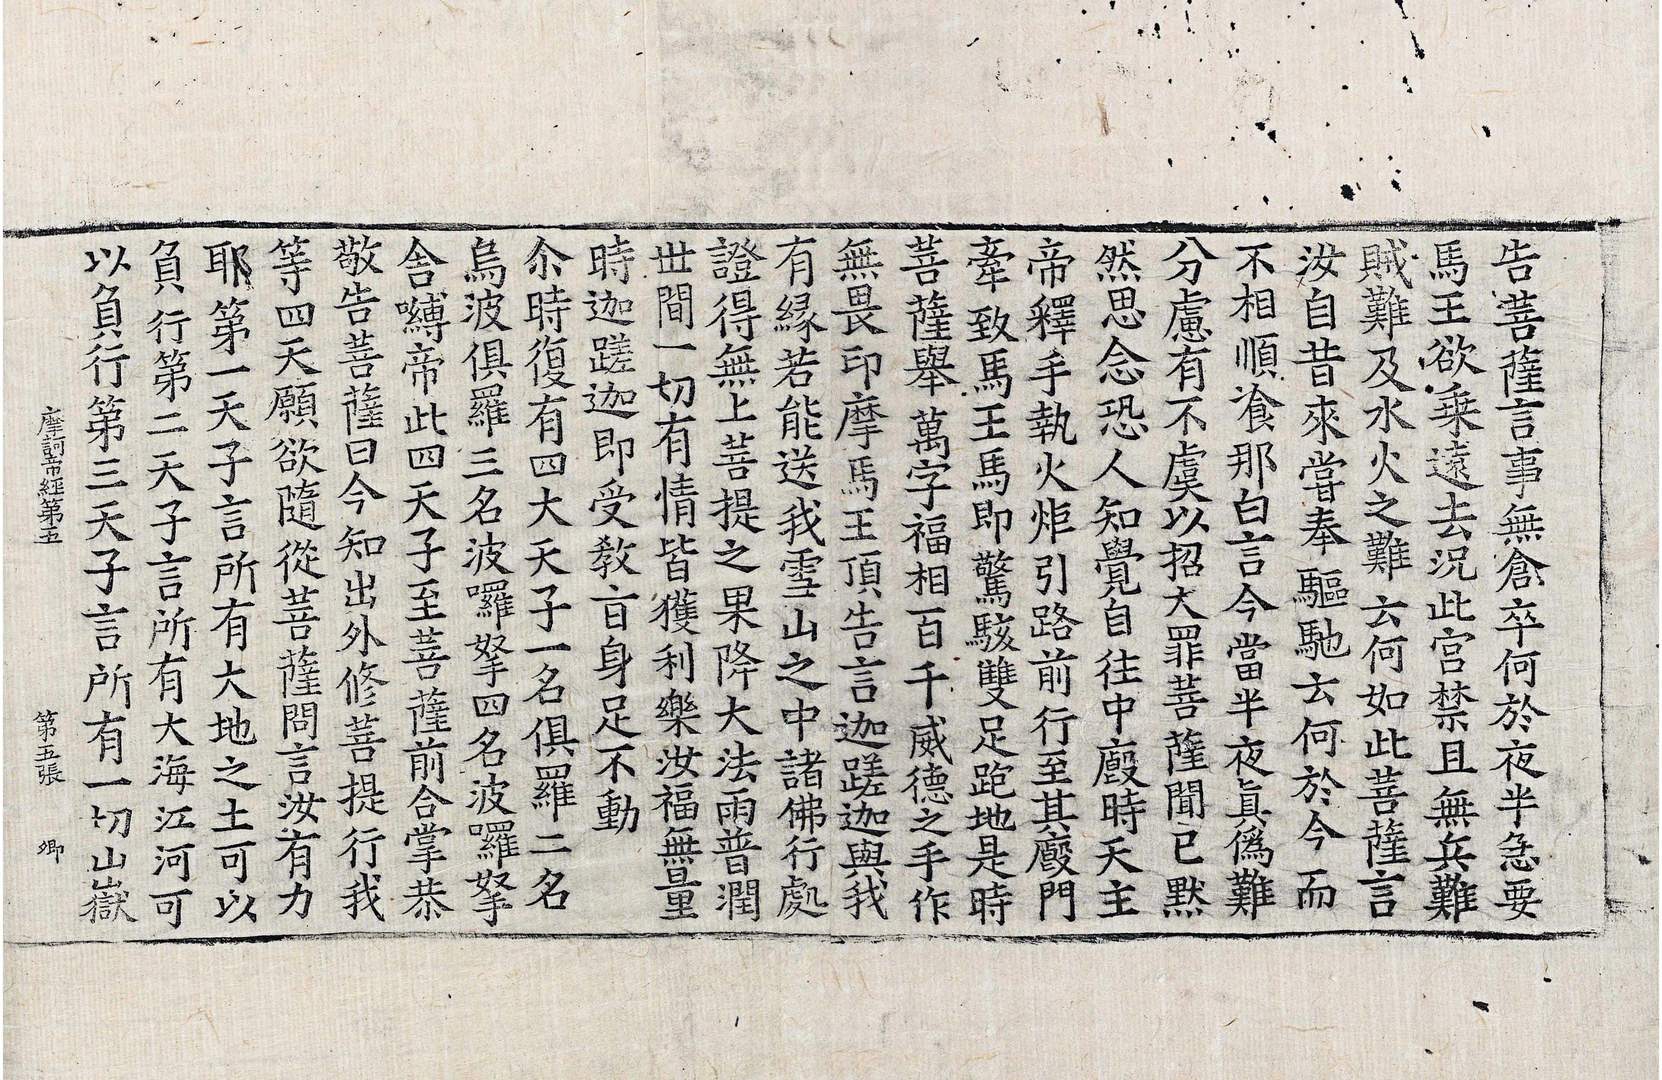 告菩薩言事無倉卒何於夜半急要
馬王欲乗遠去況此宮禁且無兵難
賊難及水火之難云何如此菩薩言
汝自昔來嘗奉驅馳云何於今而
不相順飡那白言今當半夜眞僞難
分慮有不虞以招大罪菩薩聞已默
然思念恐人知覺自往中廄時天主
帝釋手執火炬引路前行至其廄門
牽致馬王馬即驚駭雙足跑地是時
菩薩舉萬字福相百千威德之手作
無畏印摩馬王頂告言迦蹉迦與我
有緣若能送我雪山之中諸佛行處
證得無上菩提之果降大法雨普潤
世間一切有情皆獲利樂汝福無量
時迦蹉迦即受教旨身足不動
尒時復有四大天子一名俱羅二名
烏波俱羅三名波囉拏四名波囉拏
舎嚩帝此四天子至菩薩前合掌恭
敬告菩薩曰今知出外修菩提行我
等四天願欲隨從菩薩問言汝有力
耶第一天子言所有大地之土可以
負行第二天子言所有大海江河可
以負行第三天子言所有一切山嶽
摩訶帝經第五 第五張 卿